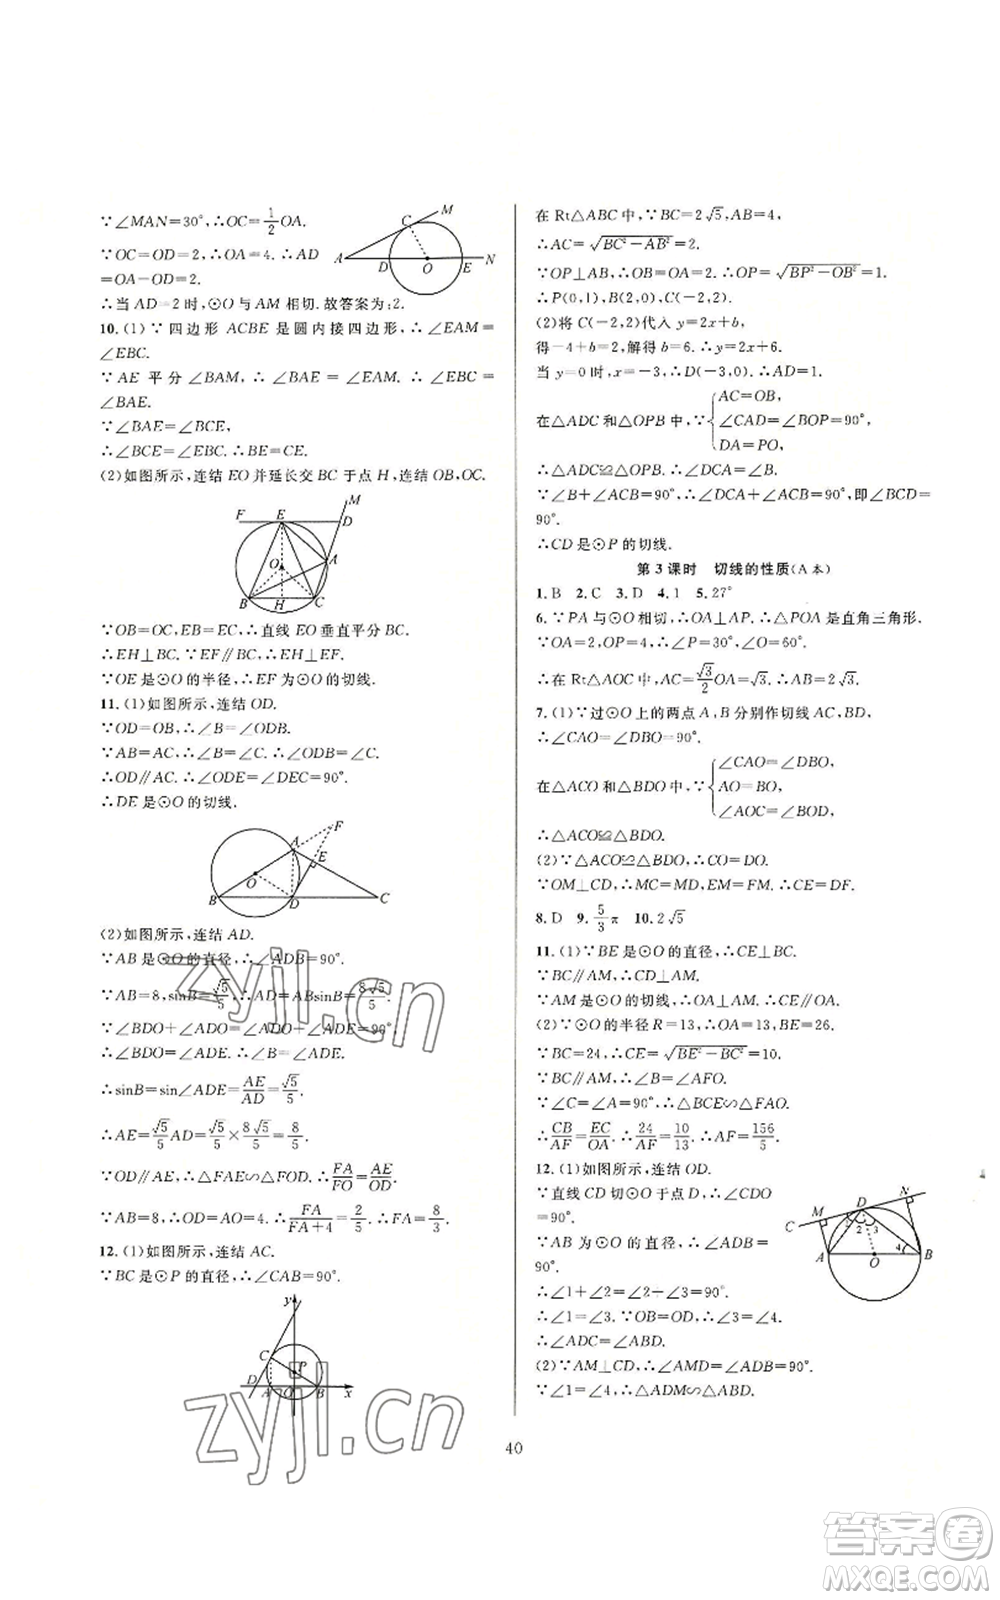 ∵∠MAN=30°,∴OC=1/2OA.
∵OC=OD=2,∴OA=4.∴AD
=OA-OD=2.
∴当 AD=2时,⊙O与AM相切.故答案为:2.
10.(1)∵四边形 ACBE 是圆内接四边形,∴∠EAM=
∠EBC.
∵AE 平分∠BAM,∴∠BAE=∠EAM.∴∠EBC=
∠BAE.
∵∠BAE=∠BCE,
∴∠BCE=∠EBC.∴BE=CE.
(2)如图所示,连结EO并延长交BC于点H,连结OB,OC.
∵OB=OC,EB=EC,∴直线EO垂直平分BC.
∴EH⊥BC.∵EF∥BC,∴EH⊥EF.
∵OE是⊙O的半径,∴EF为⊙O的切线.
11.(1)如图所示,连结OD.
∵OD=OB,∴∠B=∠ODB.
∵AB=AC,∴∠B=∠C.∴∠ODB=∠C.
∴OD∥AC.∴∠ODE=∠DEC=90°.
∴DE是⊙O的切线.
(2)如图所示,连结AD.
∵AB是⊙O的直径,∴∠ADB=90°.
∵AB=8,sinB=√5/5,∴AD=ABsinB=8√5/5.
∵∠BDO+∠ADO=∠ADO+∠ADE=90°,
∴∠BDO=∠ADE.∴∠B=∠ADE.
∴sinB=sin∠ADE=AE/AD=√5/5.
∴AE=√5/5AD=√5/5×8√5/5=8/5.
∵OD∥AE,∴△FAE∽△FOD.∴FA/FO=AE/OD.
∵AB=8,∴OD=AO=4.∴FA/(FA+4)=2/5.∴FA=8/3.
12.(1)如图所示,连结AC.
∵BC是⊙P的直径,∴∠CAB=90°.
在Rt△ABC中,∵BC=2√5,AB=4,
∴AC=√(BC²-AB²)=2.
∵OP⊥AB,∴OB=OA=2.∴OP=√(BP²-OB²)=1.
∴P(0,1),B(2,0),C(-2,2).
(2)将C(-2,2)代入y=2x+b,
得-4+b=2,解得b=6.∴y=2x+6.
当y=0时,x=-3,∴D(-3,0).∴AD=1.
在△ADC和△OPB中,∵{AC=OB,
∠CAD=∠BOP=90°,
DA=PO,
∴△ADC≌△OPB.∴∠DCA=∠B.
∵∠B+∠ACB=90°,∴∠DCA+∠ACB=90°,即∠BCD=
90°.
∴CD是⊙P的切线.
第3课时 切线的性质(A本)
1.B 2.C 3.D 4.1 5.27°
6.∵PA与⊙O相切,∴OA⊥AP.∴△POA是直角三角形.
∵OA=2,OP=4,∴∠P=30°,∠O=60°.
∴在Rt△AOC中,AC=√3/2OA=√3.
7.(1)∵过⊙O上的两点A,B分别作切线AC,BD,
∴∠CAO=∠DBO=90°.
在△ACO和△BDO中,∵{∠CAO=∠DBO,
AO=BO,
∠AOC=∠BOD,
∴△ACO≌△BDO.
(2)∵△ACO≌△BDO,∴CO=DO.
∵OM⊥CD,∴CM=DM,EM=FM.∴CE=DF.
8.D 9.5/3π 10.2√5
11.(1)∵BE是⊙O的直径,∴CE⊥BC.
∵BC∥AM,∴CD⊥AM.
∵AM是⊙O的切线,∴OA⊥AM.∴CE∥OA.
(2)∵⊙O的半径R=13,∴OA=13,BE=26.
∵BC=24,∴CE=√(BE²-BC²)=10.
∵BC∥AM,∴∠B=∠AFO.
∵∠C=∠A=90°,∴△BCE∽△FAO.
∴CB/AF=EC/OA.∴24/AF=10/13.∴AF=156/5.
12.(1)如图所示,连结OD.
∵直线CD切⊙O于点D,∴∠CDO
=90°.
∵AB为⊙O的直径,∴∠ADB=
90°.
∴∠1+∠2=∠2+∠3=90°.
∴∠1=∠3.∵OB=OD,∴∠3=∠4.
∴∠ADC=∠ABD.
(2)∵AM⊥CD,∴∠AMD=∠ADB=90°.
∵∠1=∠4,∴△ADM∽△ABD.
40
zyjl.cn
zyjl.cn
答案卷
MXQE.COM